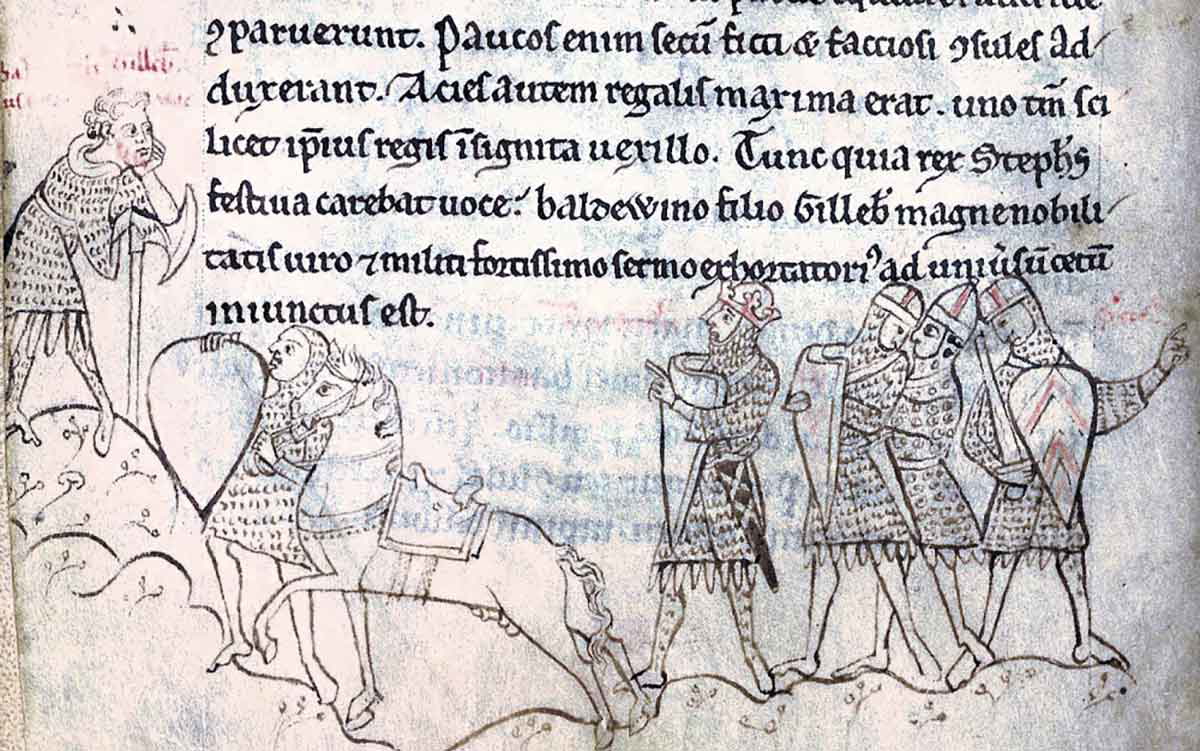 ꝯparuerunt. Paucos enim secū ficti & facciosi ꝯsules ad
duxerant. Acies autem regalis maxima erat. uno tm̄ sci
licet ip̄ius regis īsignita uexillo. Tunc quia rex Steph̄s
festiua carebat uoce: baldewino filio Gilleb̄ magne nobili
tatis uiro ⁊ militi fortissimo sermo exhortatori᷒ ad uniu͛sū cetū
iniunctus est.